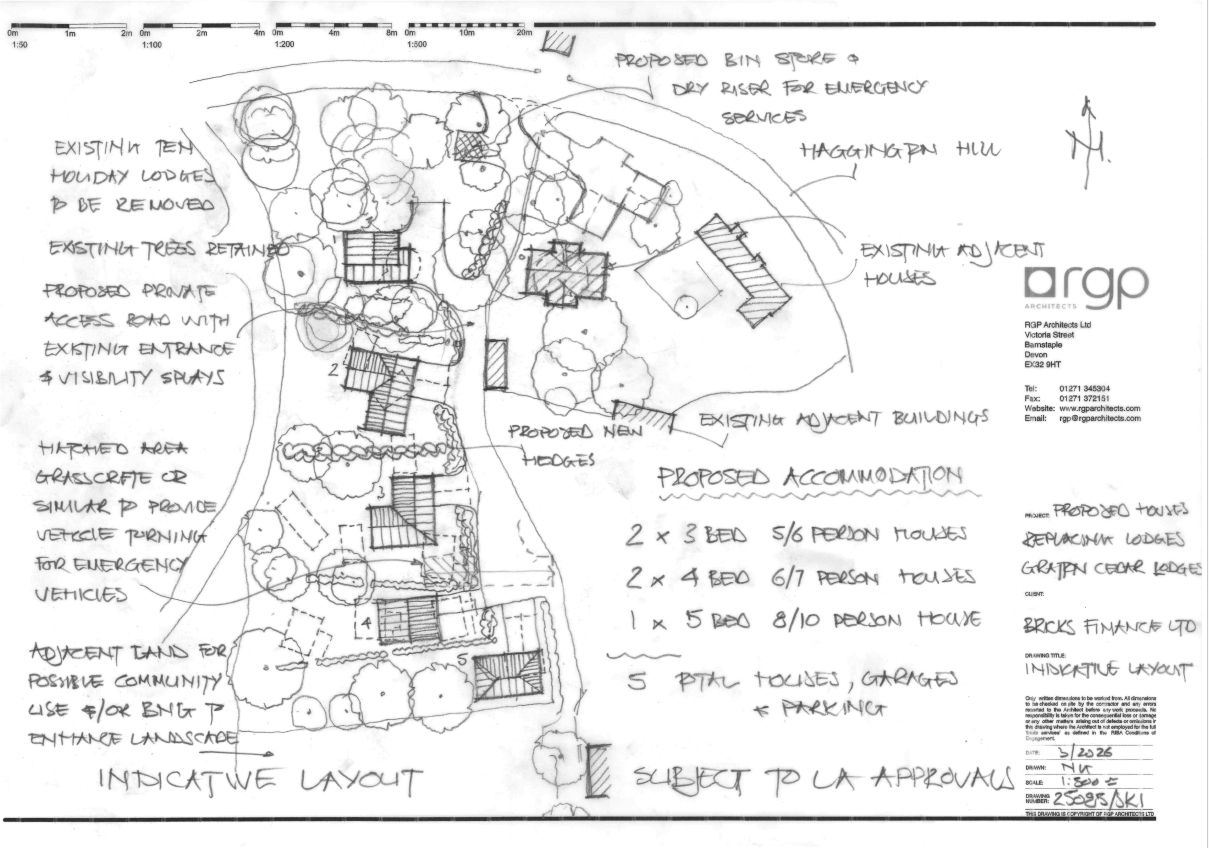 0m 1m 2m
1:50
0m 2m 4m
1:100
0m 4m 8m
1:200
0m 10m 20m
1:500
PROPOSED BIN STORE &
DRY RISER FOR EMERGENCY
SERVICES
HAGGINGTON HILL
N.
EXISTING TEN
HOLIDAY LODGES
TO BE REMOVED
EXISTING TREES RETAINED
PROPOSED PRIVATE
ACCESS ROAD WITH
EXISTING ENTRANCE
& VISIBILITY SPLAYS
HATCHED AREA
GRASSCRETE OR
SIMILAR TO PROVIDE
VEHICLE TURNING
FOR EMERGENCY
VEHICLES
ADJACENT LAND FOR
POSSIBLE COMMUNITY
USE &/OR BNG TO
ENHANCE LANDSCAPE
EXISTING ADJACENT
HOUSES
EXISTING ADJACENT BUILDINGS
PROPOSED NEW
HEDGES
2
3
4
5
PROPOSED ACCOMMODATION
2 x 3 BED 5/6 PERSON HOUSES
2 x 4 BED 6/7 PERSON HOUSES
1 x 5 BED 8/10 PERSON HOUSE
5 TOTAL HOUSES, GARAGES
& PARKING
INDICATIVE LAYOUT
SUBJECT TO LA APPROVALS
rgp
ARCHITECTS
RGP Architects Ltd
Victoria Street
Barnstaple
Devon
EX32 9HT
Tel: 01271 345304
Fax: 01271 372151
Website: www.rgparchitects.com
Email: rgp@rgparchitects.com
PROJECT: PROPOSED HOUSES
REPLACING LODGES
GRATTON CEDAR LODGES
CLIENT:
BRICKS FINANCE LTD
DRAWING TITLE:
INDICATIVE LAYOUT
Only written dimensions to be worked from. All dimensions
to be checked on site by the contractor and any errors
reported to the Architect before any work proceeds. No
responsibility is taken for the consequential loss or damage
or any other matters arising out of defects or omissions in
this drawing where the Architect is not employed for the full
basic services' as defined in the RIBA Conditions of
Engagement.
DATE: 3/2026
DRAWN:
SCALE: 1:500 ±
DRAWING
NUMBER: 25095/SK1
THIS DRAWING IS COPYRIGHT OF RGP ARCHITECTS LTD